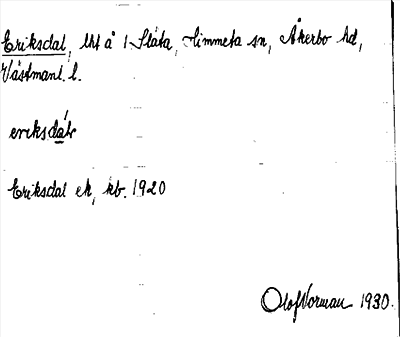 Eriksdal, lht å 1 Slåta, Himmeta sn, Åkerbo hd,
Västmanl. l.
eriksdáɫ
Eriksdal ek, kb. 1920
Olof Norman 1930.